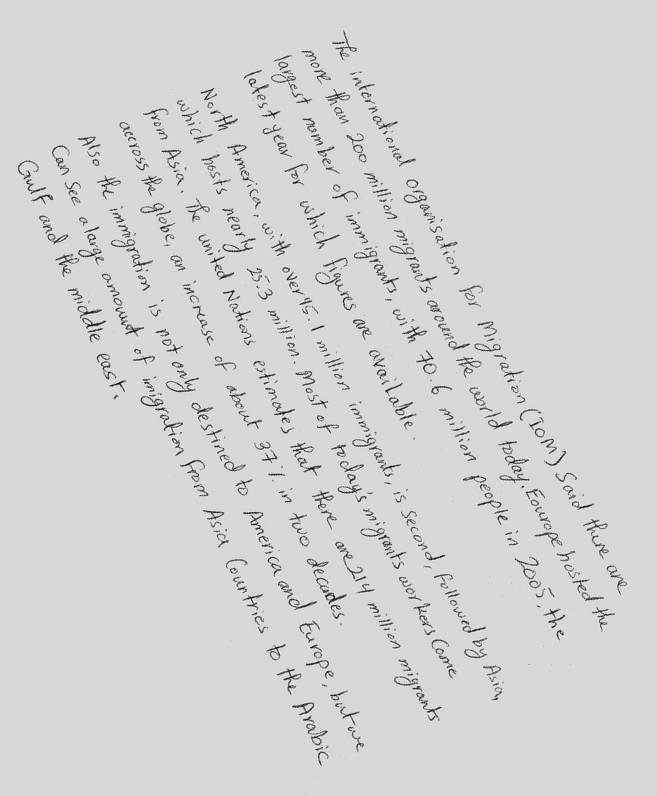 The international organisation for Migration (IOM) Said there are
more than 200 million migrants around the world today. Eourope hosted the
largest number of immigrants, with 70.6 million people in 2005, the
latest year for which figures are available.
North America, with over 45.1 million immigrants, is second, followed by Asia,
which hosts nearly 25.3 million. Most of today's migrants workers Come
from Asia. The united Nations estimates that there are 214 million migrants
across the globe, an increase of about 37% in two decades.
Also the immigration is not only destined to America and Europe, but we
Can see a large amount of imigration from Asia Countries to the Arabic
Gulf and the middle east.